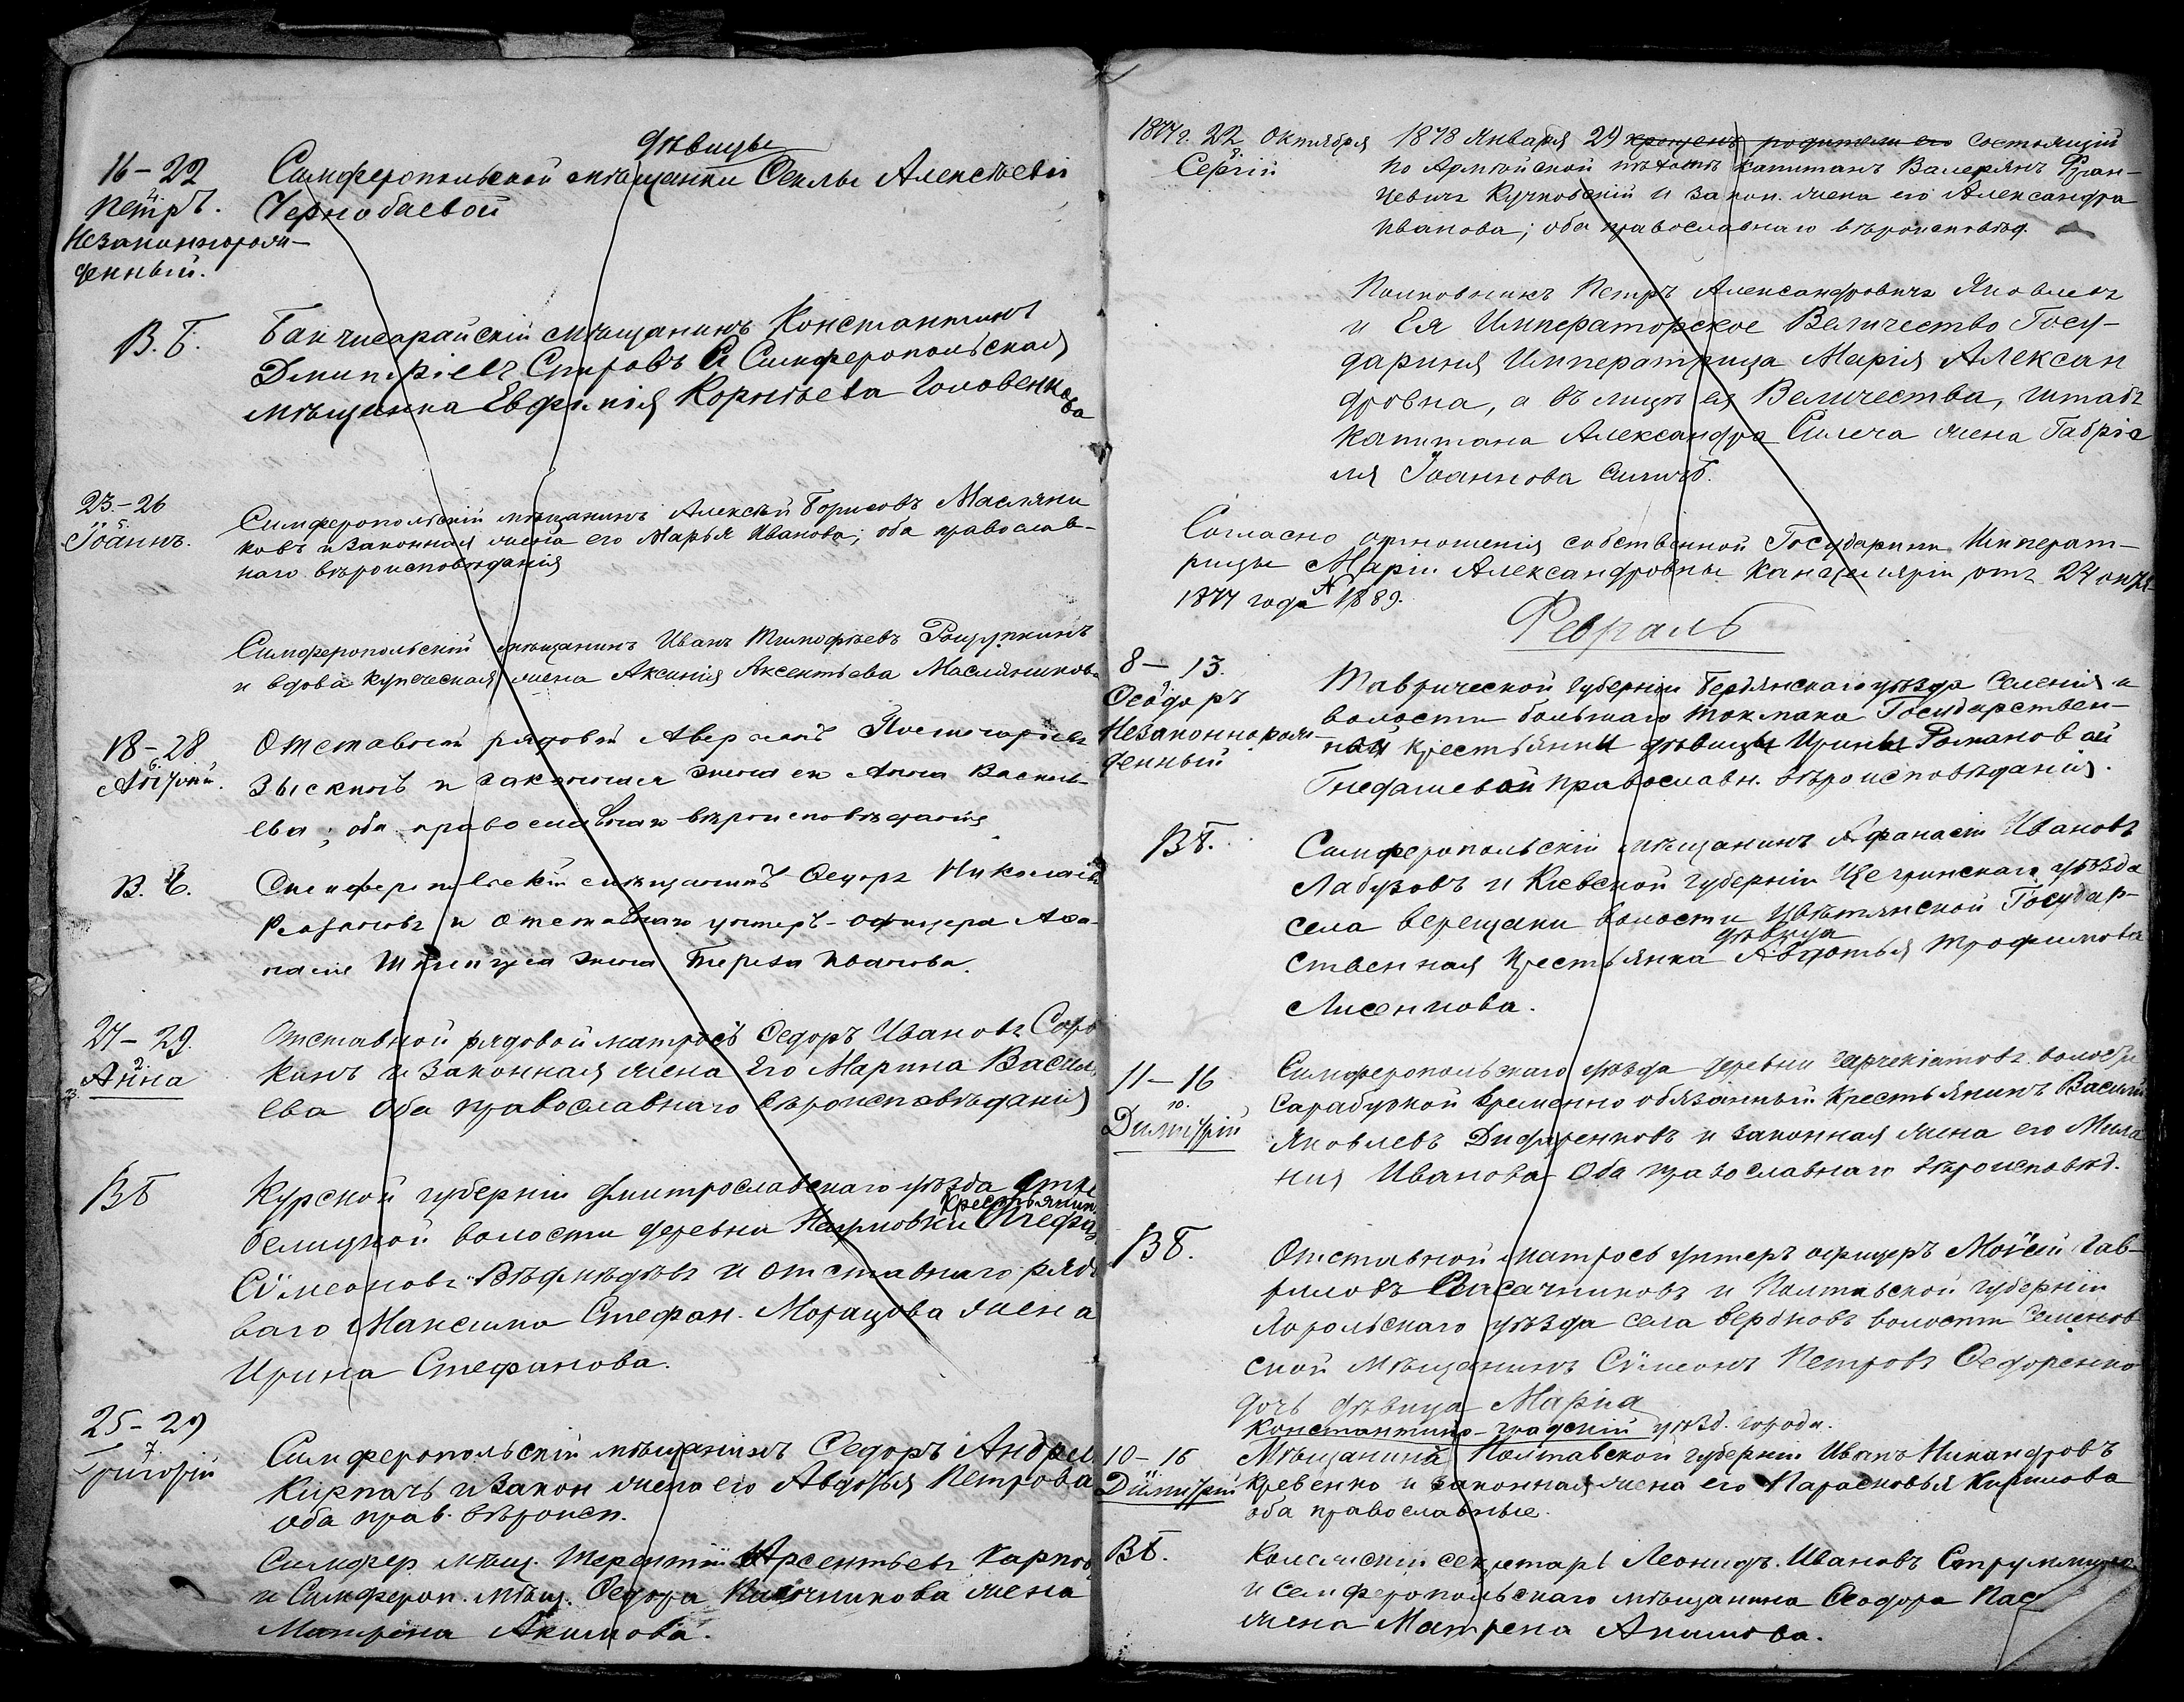 16-22
Петръ.
Незаконнорож-
денный.
дѣвицы
Симферопольской мѣщанки Ѳеклы Алексѣевой
Чернобаевой
В. Б.
Бакчисарайскій мѣщанинъ Константинъ
Дмитріевъ Спировъ и Симферопольская
мѣщанка Евфимія Корнѣева Головенкова
23.-26
Іоаннъ.
Симферопольскій мѣщанинъ Алексѣй Борисовъ Маслени
ковъ и законная жена его Марья Иванова; оба православ-
наго вѣроисповѣданія
Симферопольскій мѣщанинъ Иванъ Тимофѣевъ Рощупкинъ
и вдова купеческая жена Аксинія Аксентьева Масляникова
18-28
6.
Андрей.
Отставной рядовой
и законная жена его Анна Василь-
ева; оба православнаго вѣроисповѣданія.
В. Б.
Симферопольскій мѣщанинъ Ѳедоръ Николаевъ
и отставнаго унтеръ-офицера Аѳа-
насія жена Тереза Иванова.
27-29.
2
Анна
Отставной рядовой матросъ Ѳедоръ Ивановъ
кинъ и законная жена его Марина Василь
ева оба православнаго вѣроисповѣданія
ВБ
Курской губерніи Дмитрославскаго уѣзда
крестьянин
белицкой волости деревни Стефан
Сѵмеоновъ и отставнаго рядо
ваго Максима Стефан.Морацова жена
Ирина Стефанова.
25-29
7
Григорій
Симферопольскій мѣщанинъ Ѳедоръ Андреев
Кирпачъ и закон жена его Авдотья Петрова
оба прав. вѣроисп.
Симфер мѣщ. Терентій Арсентьевъ Карпов
и Симфероп. мѣщ. Ѳедора Ключникова жена
Матрена Акимова.
1877г. 22 Октября 1878 Января 29 крещенъ родители его состоящій
8.
Сергій
по Армейской пѣхотѣ капитанъ Валерянъ Фран-
цевичъ Кучковскій и закон. жена его Александра
Иванова; оба православнаго вѣроисповѣд.
Полковникъ Петръ Александровичъ Яковлевъ
и Ея Императорское Величество Госу-
дарыня Императрица Марія Алексан
дровна, а въ лицѣ ея Величества, штабъ
капитана Александра Силича жена Габріе
ля Іоаннова Силичъ.
Согласно отношенія собственной Государыни Императ-
рицы Маріи Александровны канцеляріи отъ 27 октя
1877 года № 1889.
Февраль
8-13.
9
Ѳеодоръ
Незаконнорож-
денный
Таврической губерніи Бердянскаго уѣзда селенія и
волости большаго Токмака Государствен-
ной крестьянки дѣвицы Ирины Романовой
Гнедашевой православн. вѣроисповѣданія.
ВБ.
Симферопольскій мѣщанинъ Афанасій Ивановъ
Лабузовъ и Кіевской губерніи Чегринскаго уѣзда
села Верещаки волости Цвѣтянской Государ-
дѣвица
ственная крестьянка Авдотья Трофимова
Лисенкова.
11-16
10.
Димитрій
Симферопольскаго уѣзда деревни волости
Сарабузкой временно обязанный крестьянинъ Василій
Яковлевъ Дифяренковъ и законная жена его Мела
нія Иванова Оба православнаго вѣроисповѣд.
ВБ.
Отставной матросъ унтеръ офицеръ Моѵсей Гав-
риловъ и Полтавской губерніи
Хорольскаго уѣзда села Вербковъ волости Семенов
ской мѣщанинъ Сѵмеонъ Петровъ Ѳедоренко
дочь дѣвица Марія
Константино-градскій уѣзд. города.
10-16
11
Димитрій
Мѣщанинъ Полтавской губерніи Иванъ Никандровъ
Кревенко и законная жена его Парасковья Кирилова
оба православные.
ВБ.
Колежскій секретарь Леонидъ Ивановъ
и симферопольскаго мѣщанина Ѳеодора
жена Матрена Акимова.